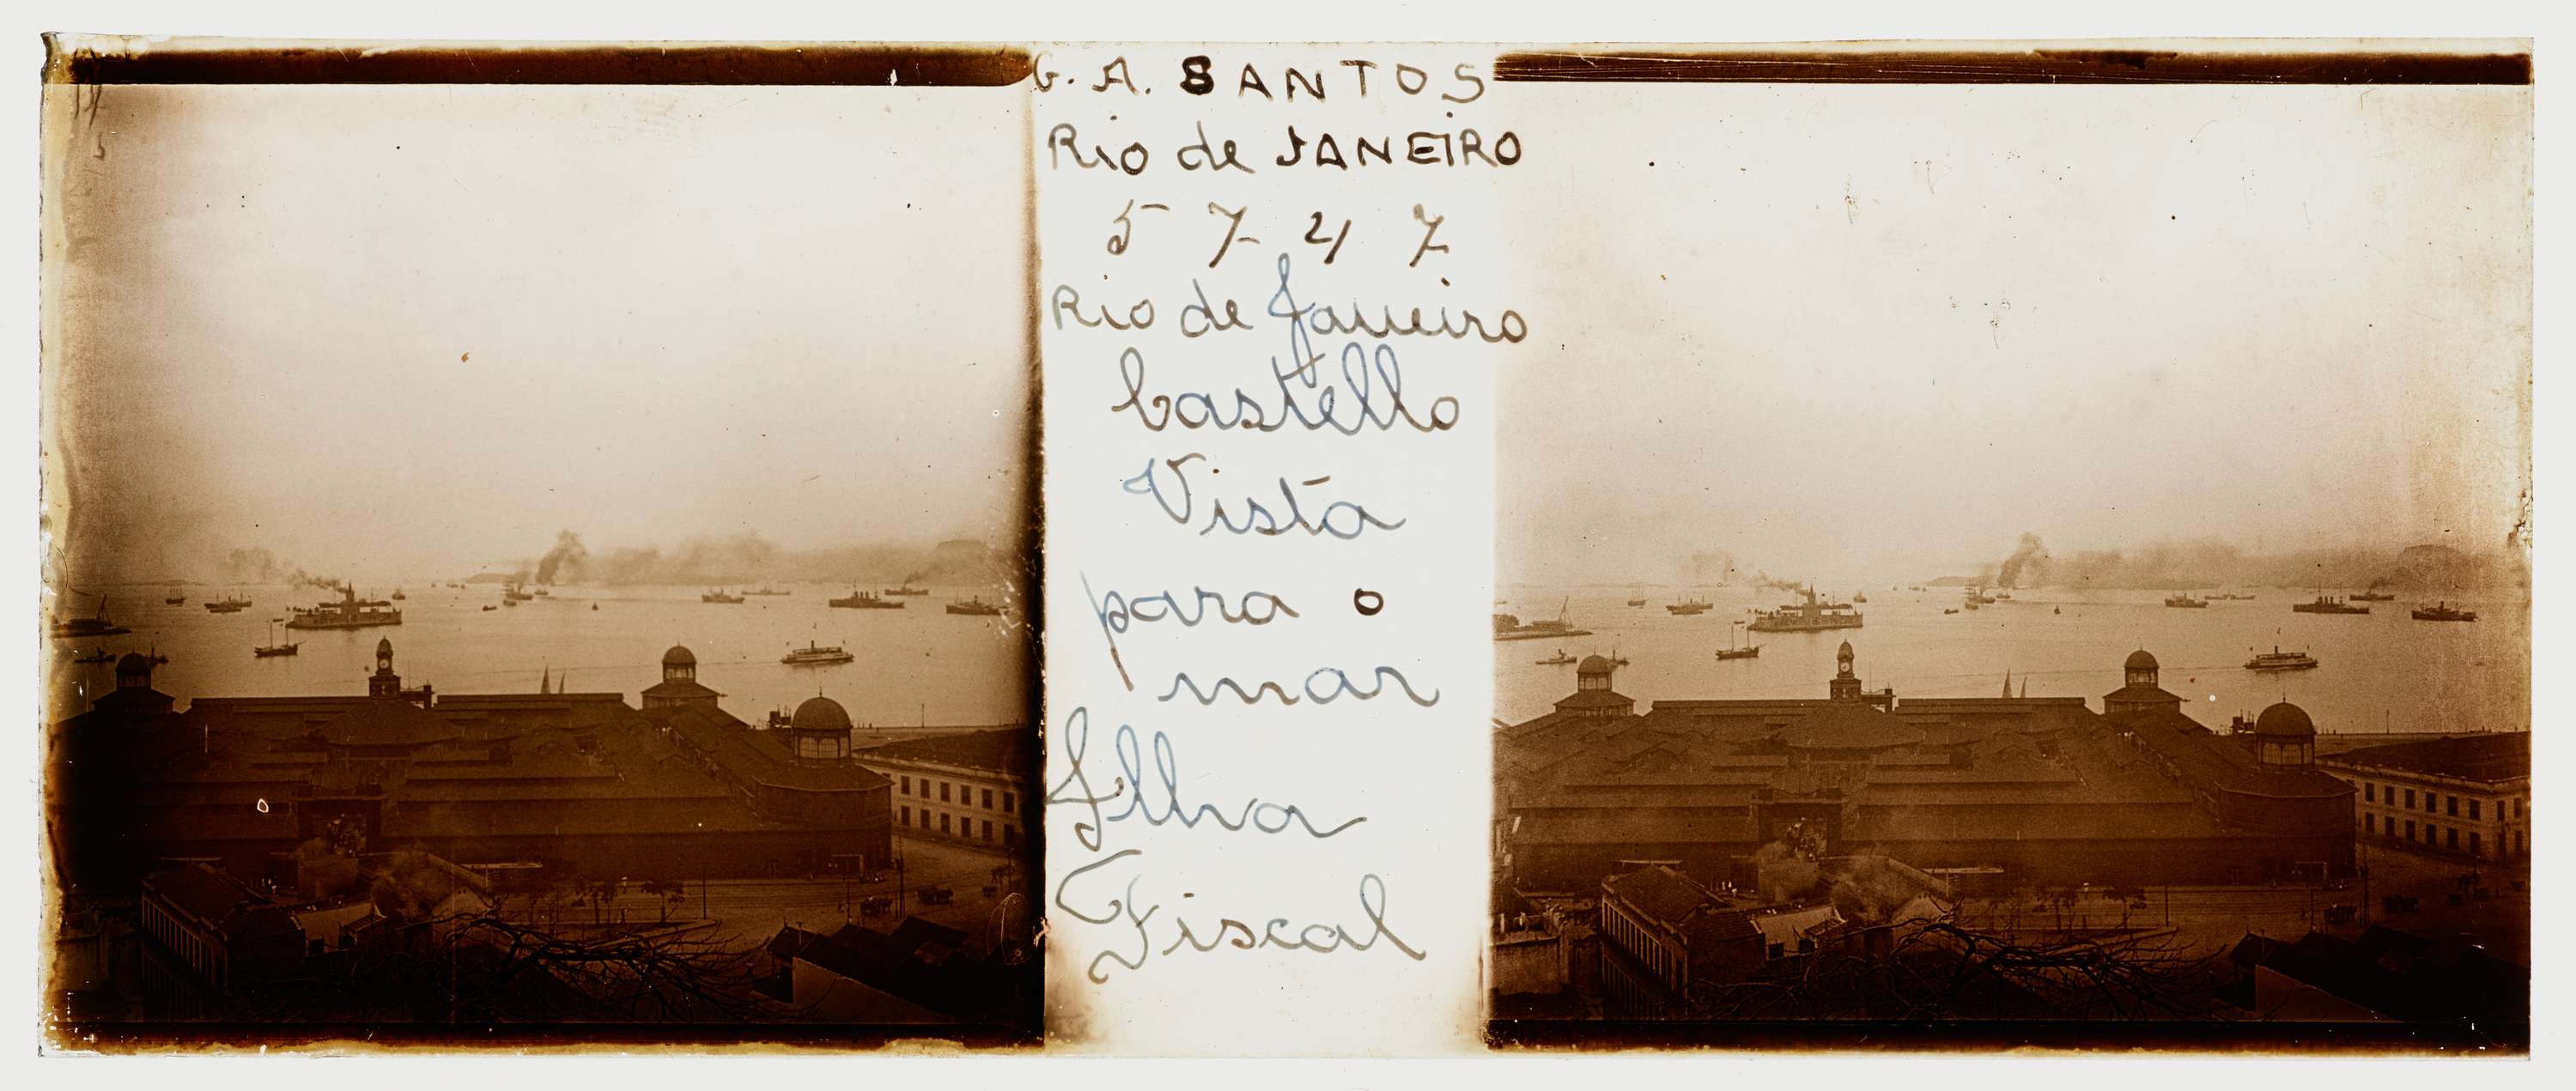 G. A. SANTOS
Rio de JANEIRO
5 7 4 7
Rio de Janeiro
Castello
Vista
para o
mar
Ilha
Fiscal